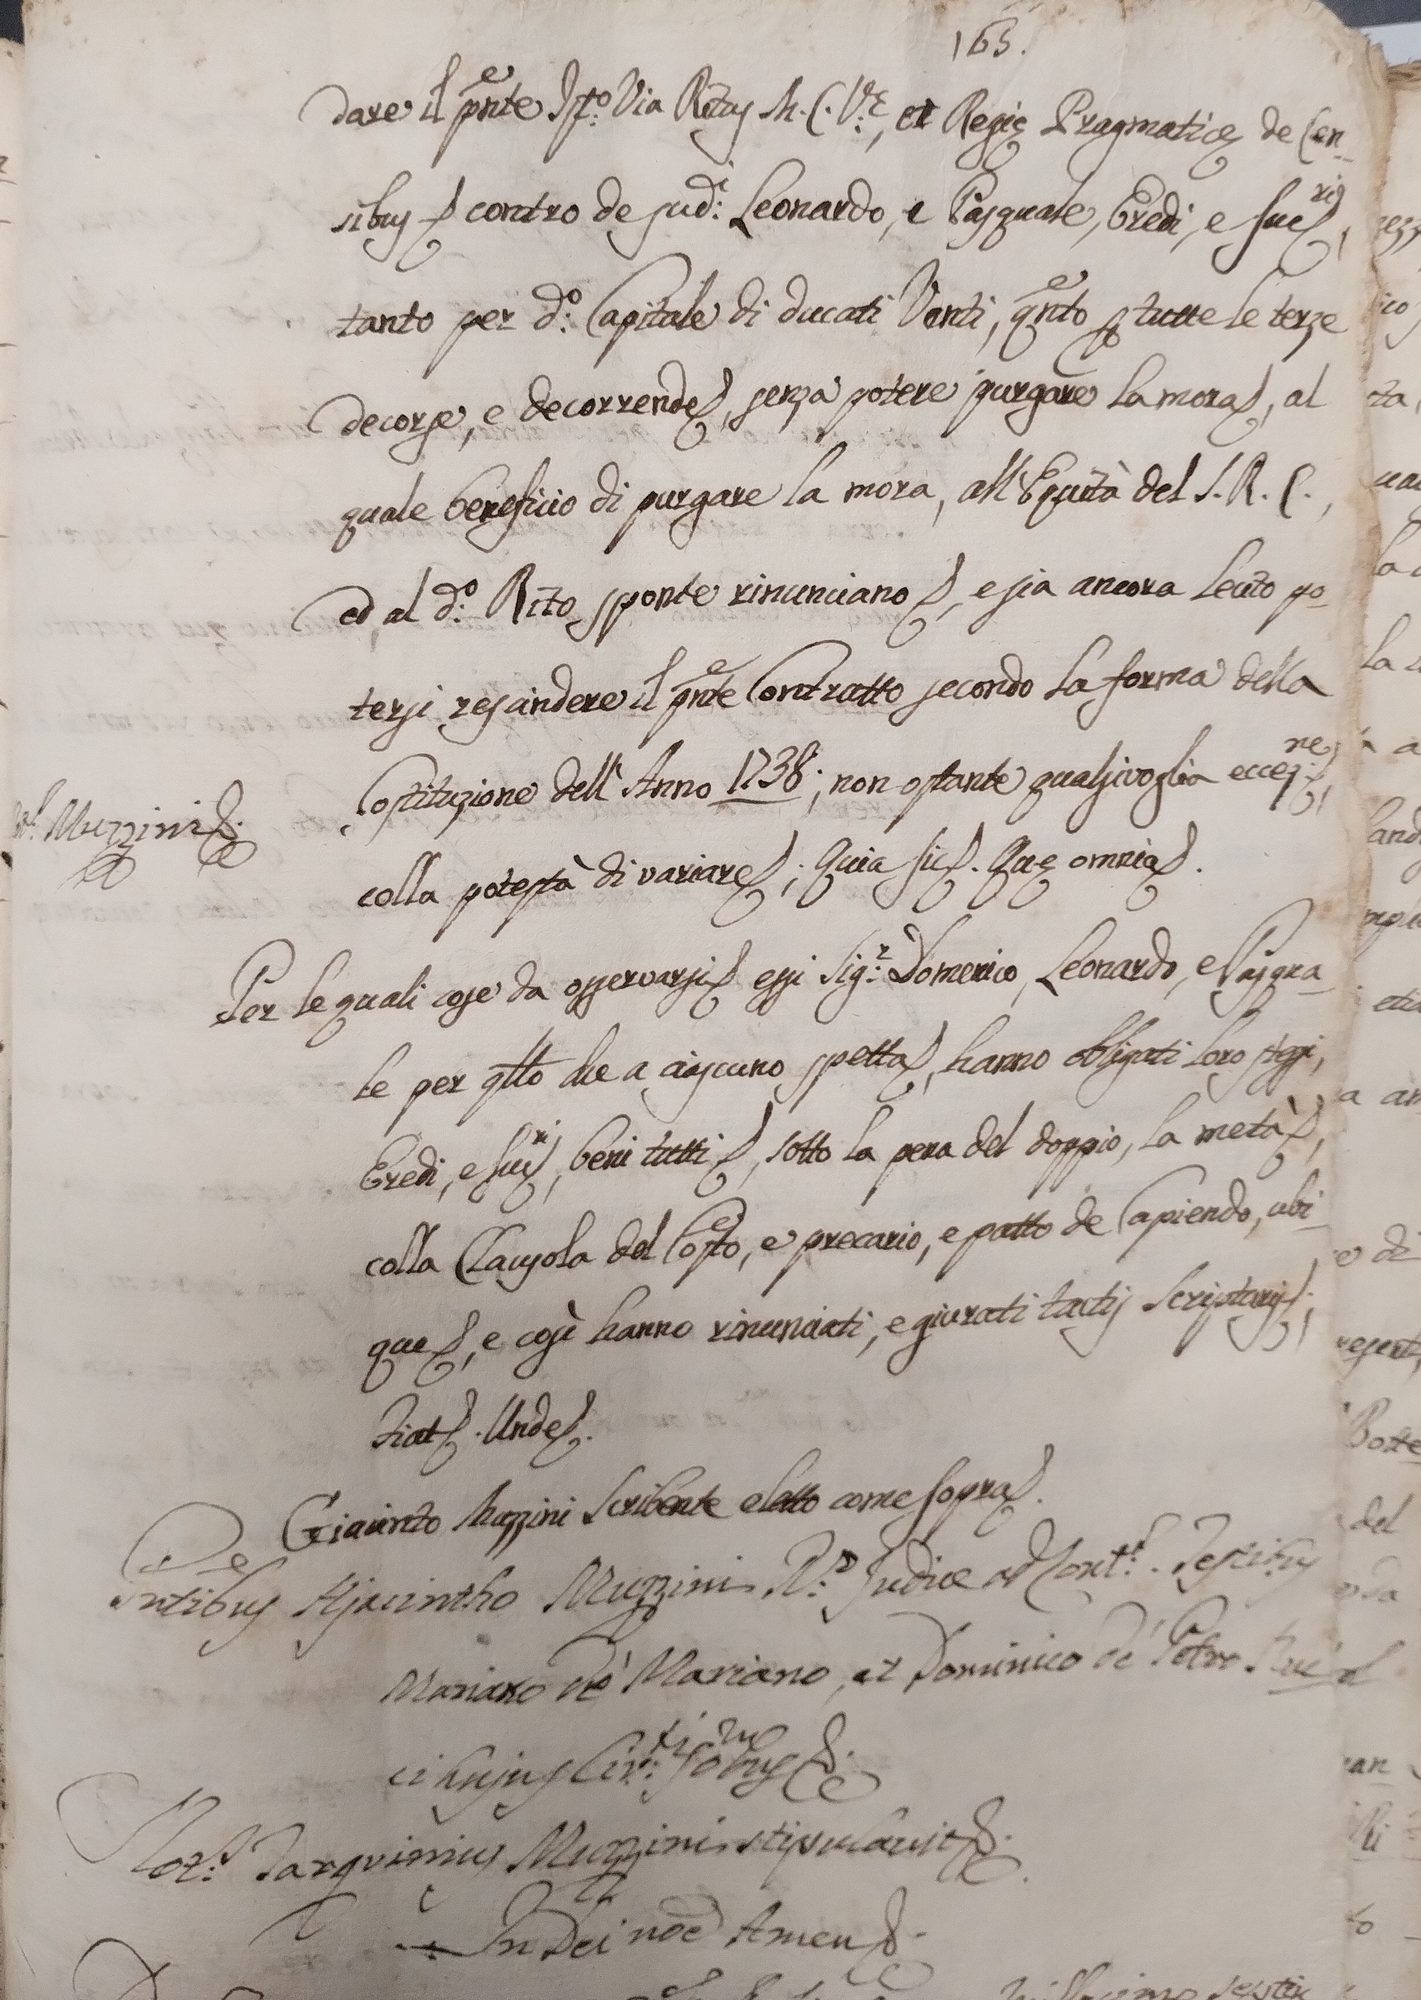 165.
dare il pnte Ist.o Via Ritus M. C. V.e, et Regię Pragmaticę de Cen-
sibus contro de sud.i Leonardo, e Pasquale, Eredi, e Suc.ri,
tanto per d.o Capitale di ducati Venti, qnto p tutte le terze
decorse, e decorrende, senza potere purgare la mora, al
quale beneficio di purgare la mora, all'Equità del S. R. C.,
ed al d.o Rito sponte rinunciano, e sia ancora lecito po-
tersi rescindere il pnte Contratto secondo la forma della
Costituzione dell'Anno 1738; non ostante qualsivoglia eccez.ne,
Not.r Muzzini
colla potestà di variare; Quia sic. Quę omnia.
Per le quali cose da osservarsi essi Sig.r Domenico, Leonardo, e Pasqua-
le per qllo che a ciascuno spetta, hanno obligati loro stessi,
Eredi, e Suc.ri, beni tutti, sotto la pena del doppio, la metà,
colla Clausola del Costo, e precario, e patto de Capiendo, ubi-
que, e così hanno rinunciati, e giurati tactis Scripturis.
Fiat. Unde.
Giacinto Muzzini Scribente eletto come sopra.
Pntibus Hjacintho Muzzini R.o Judice ad Cont.s. Testibus
Mariano de Mariano, et Dominico de Petro
ci hujus Civ.tis
Not.r Tarquinius Muzzini stipulavit.
In Dei nõe Amen.